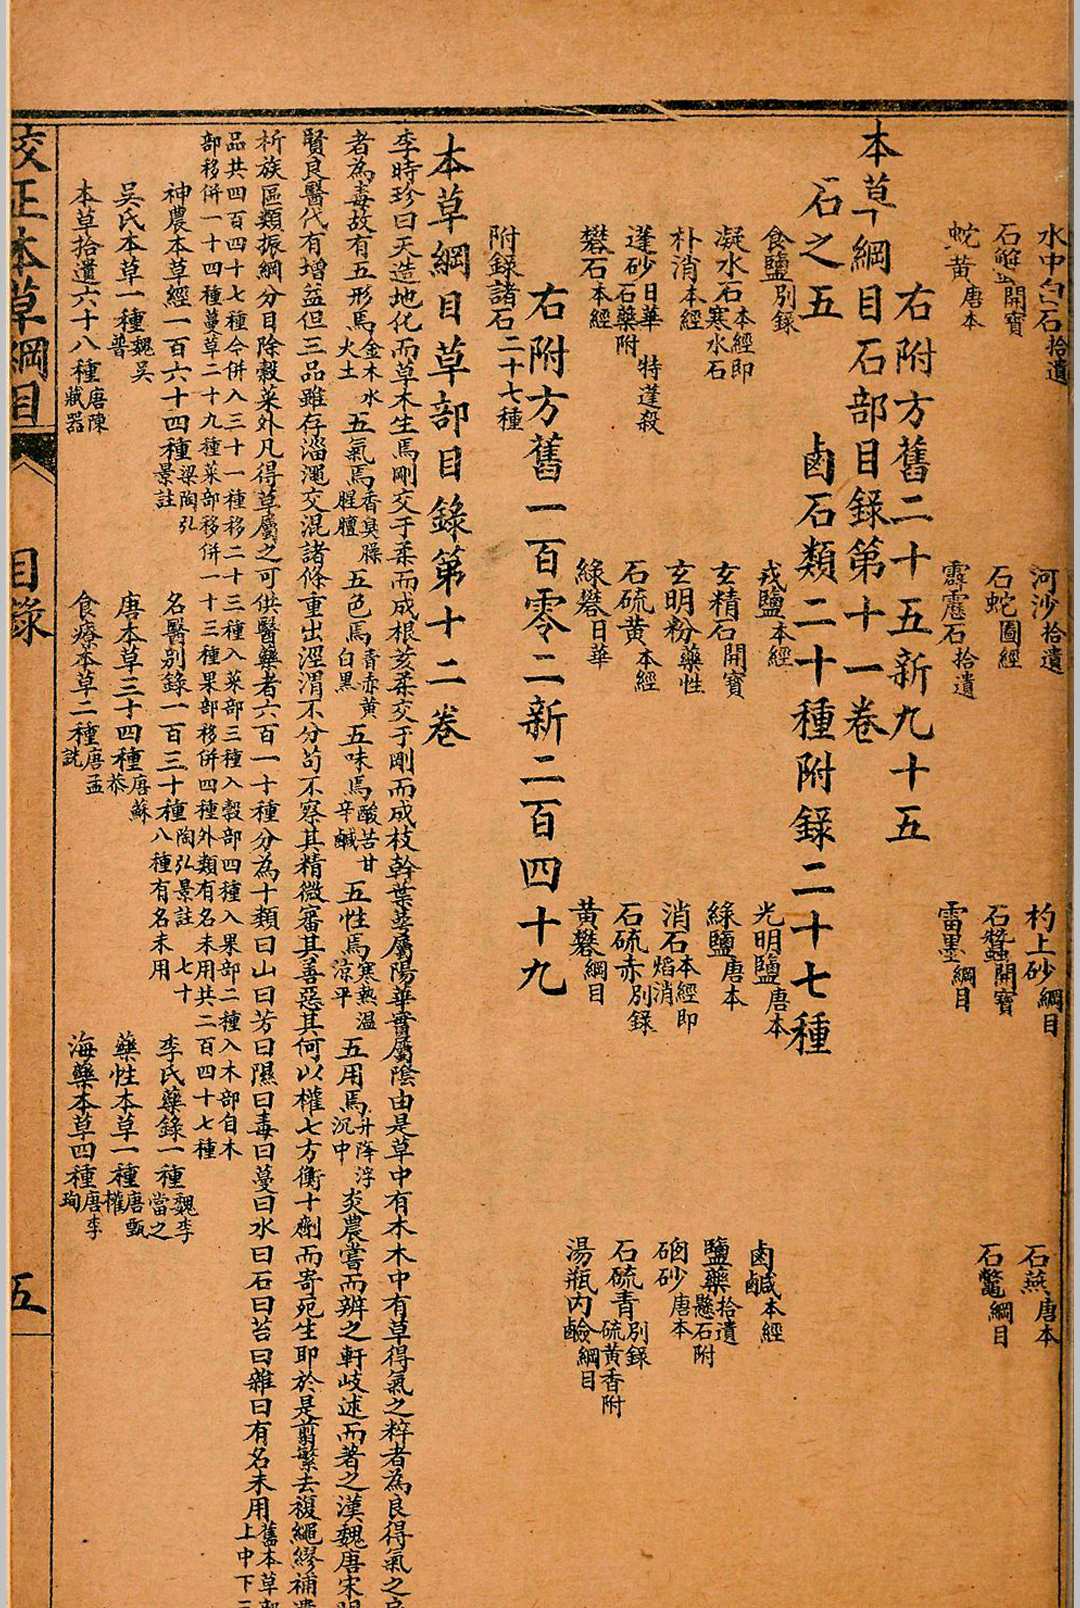 水中白石拾遺 河沙拾遺 杓上砂綱目 石燕唐本
石蟹開寶 石蛇圖經 石蠶開寶 石鱉綱目
蛇黃唐本 霹靂石拾遺 雷墨綱目
右附方舊二十五新九十五
本草綱目石部目錄第十一卷
石之五 鹵石類二十種附錄二十七種
食鹽別錄 戎鹽本經 光明鹽唐本 鹵鹹本經
凝水石本經即寒水石 玄精石開寶 綠鹽唐本 鹽藥拾遺懸石附
朴消本經 玄明粉藥性 消石本經即焰消 硇砂唐本
蓬砂日華 石藥附特蓬殺 石硫黃本經 石硫赤別錄 石硫青別錄硫黃香附
礬石本經 綠礬日華 黃礬綱目 湯瓶內鹼綱目
右附方舊一百零二新二百四十九
附錄諸石二十七種
本草綱目草部目錄第十二卷
李時珍曰天造地化而草木生焉剛交于柔而成根荄柔交于剛而成枝幹葉萼屬陽華實屬陰由是草中有木木中有草得氣之粹者為良得氣之
者為毒故有五形焉金木水火土五氣焉香臭臊腥膻五色焉青赤黃白黑五味焉酸苦甘辛鹹五性焉寒熱溫涼平五用焉升降浮沉中炎農嘗而辨之軒岐述而著之漢魏唐宋明
賢良醫代有增益但三品雖存淄澠交混諸條重出涇渭不分苟不察其精微審其善惡其何以權七方衡十劑而寄死生耶於是剪繁去複繩繆補遺
析族區類振綱分目除穀菜外凡得草屬之可供醫藥者六百一十種分為十類曰山曰芳曰隰曰毒曰蔓曰水曰石曰苔曰雜曰有名未用舊本草部上中下三
品共四百四十七種今併入三十一種移二十三種入菜部三種入穀部四種入果部二種入木部自木
部移併一十四種蔓草二十九種菜部移併一十三種果部移併四種外類有名未用共二百四十七種
神農本草經一百六十四種梁陶弘景註 名醫別錄一百三十種陶弘景註七十八種有名未用 李氏藥錄一種魏李當之
吳氏本草一種魏吳普 唐本草三十四種唐蘇恭 藥性本草一種唐甄權
本草拾遺六十八種唐陳藏器 食療本草二種唐孟詵 海藥本草四種唐李珣
校正本草綱目 目錄 五